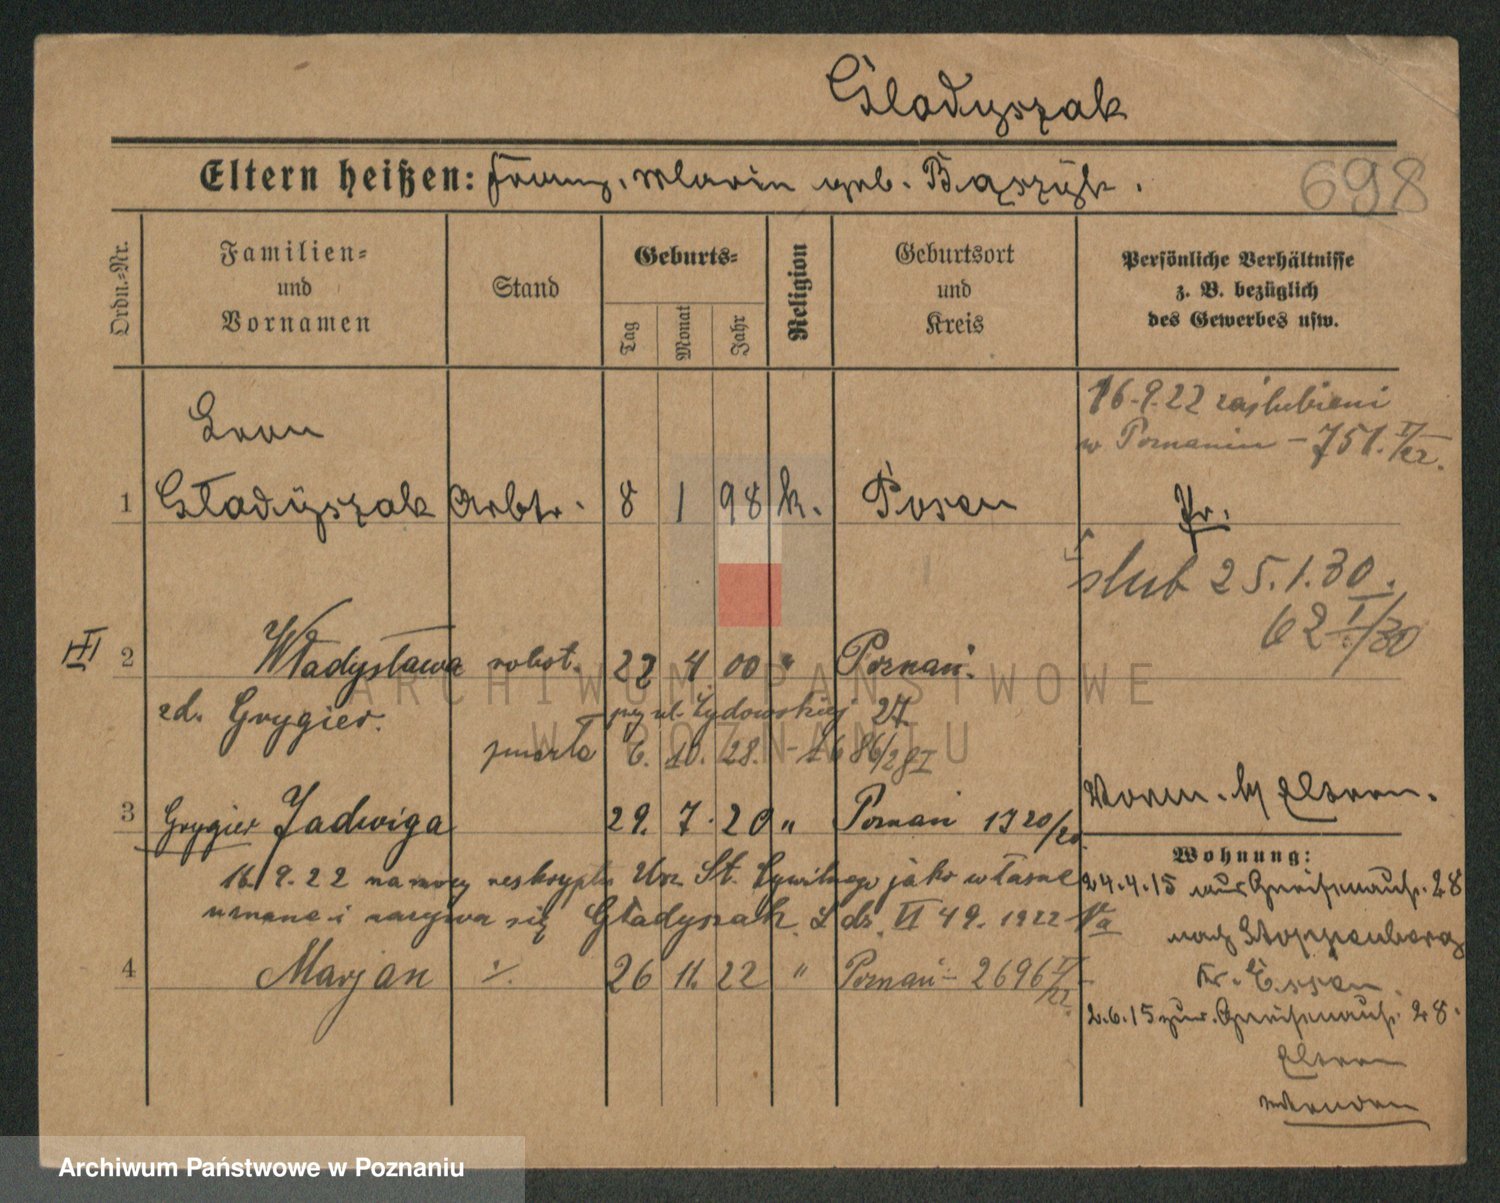 Gladyszak
Eltern heißen: Franz, Maria geb. Baszyk.
698
Ordn.-Nr.
Familien-
und
Vornamen
Stand
Geburts-
Tag
Monat
Jahr
Religion
Geburtsort
und
Kreis
Persönliche Verhältnisse
z. B. bezüglich
des Gewerbes usw.
16.9.22 zaślubieni
w Poznaniu - 751.
Leon
1 Gładyszak Arbtr. 8 1 98 k. Posen Pr.
ślub 25.1.30.
62 I/30
III 2 Władysława robot. 22 4 00 " Poznań.
zd. Grygier. przy ul. Żydowskiej 27
zmarła 6. 10. 28.
3 Grygier Jadwiga 29. 7. 20 " Poznań 1320/20
16/9.22 na mocy reskryptu Urz. St. Cywilnego jako własne
uznane i nazywa się Gładyszak. L. dz. VI 49. 1922
4 Marjan ./. 26 11. 22 " Poznań - 2696
Vorm. by Eltern.
Wohnung:
24.4.15 aus Gneisenaustr. 28
nach Stoppenberg
Kr. Essen.
2.6.15 zur. Gneisenaustr. 28.
Eltern
ARCHIWUM PAŃSTWOWE
W POZNANIU
Archiwum Państwowe w Poznaniu